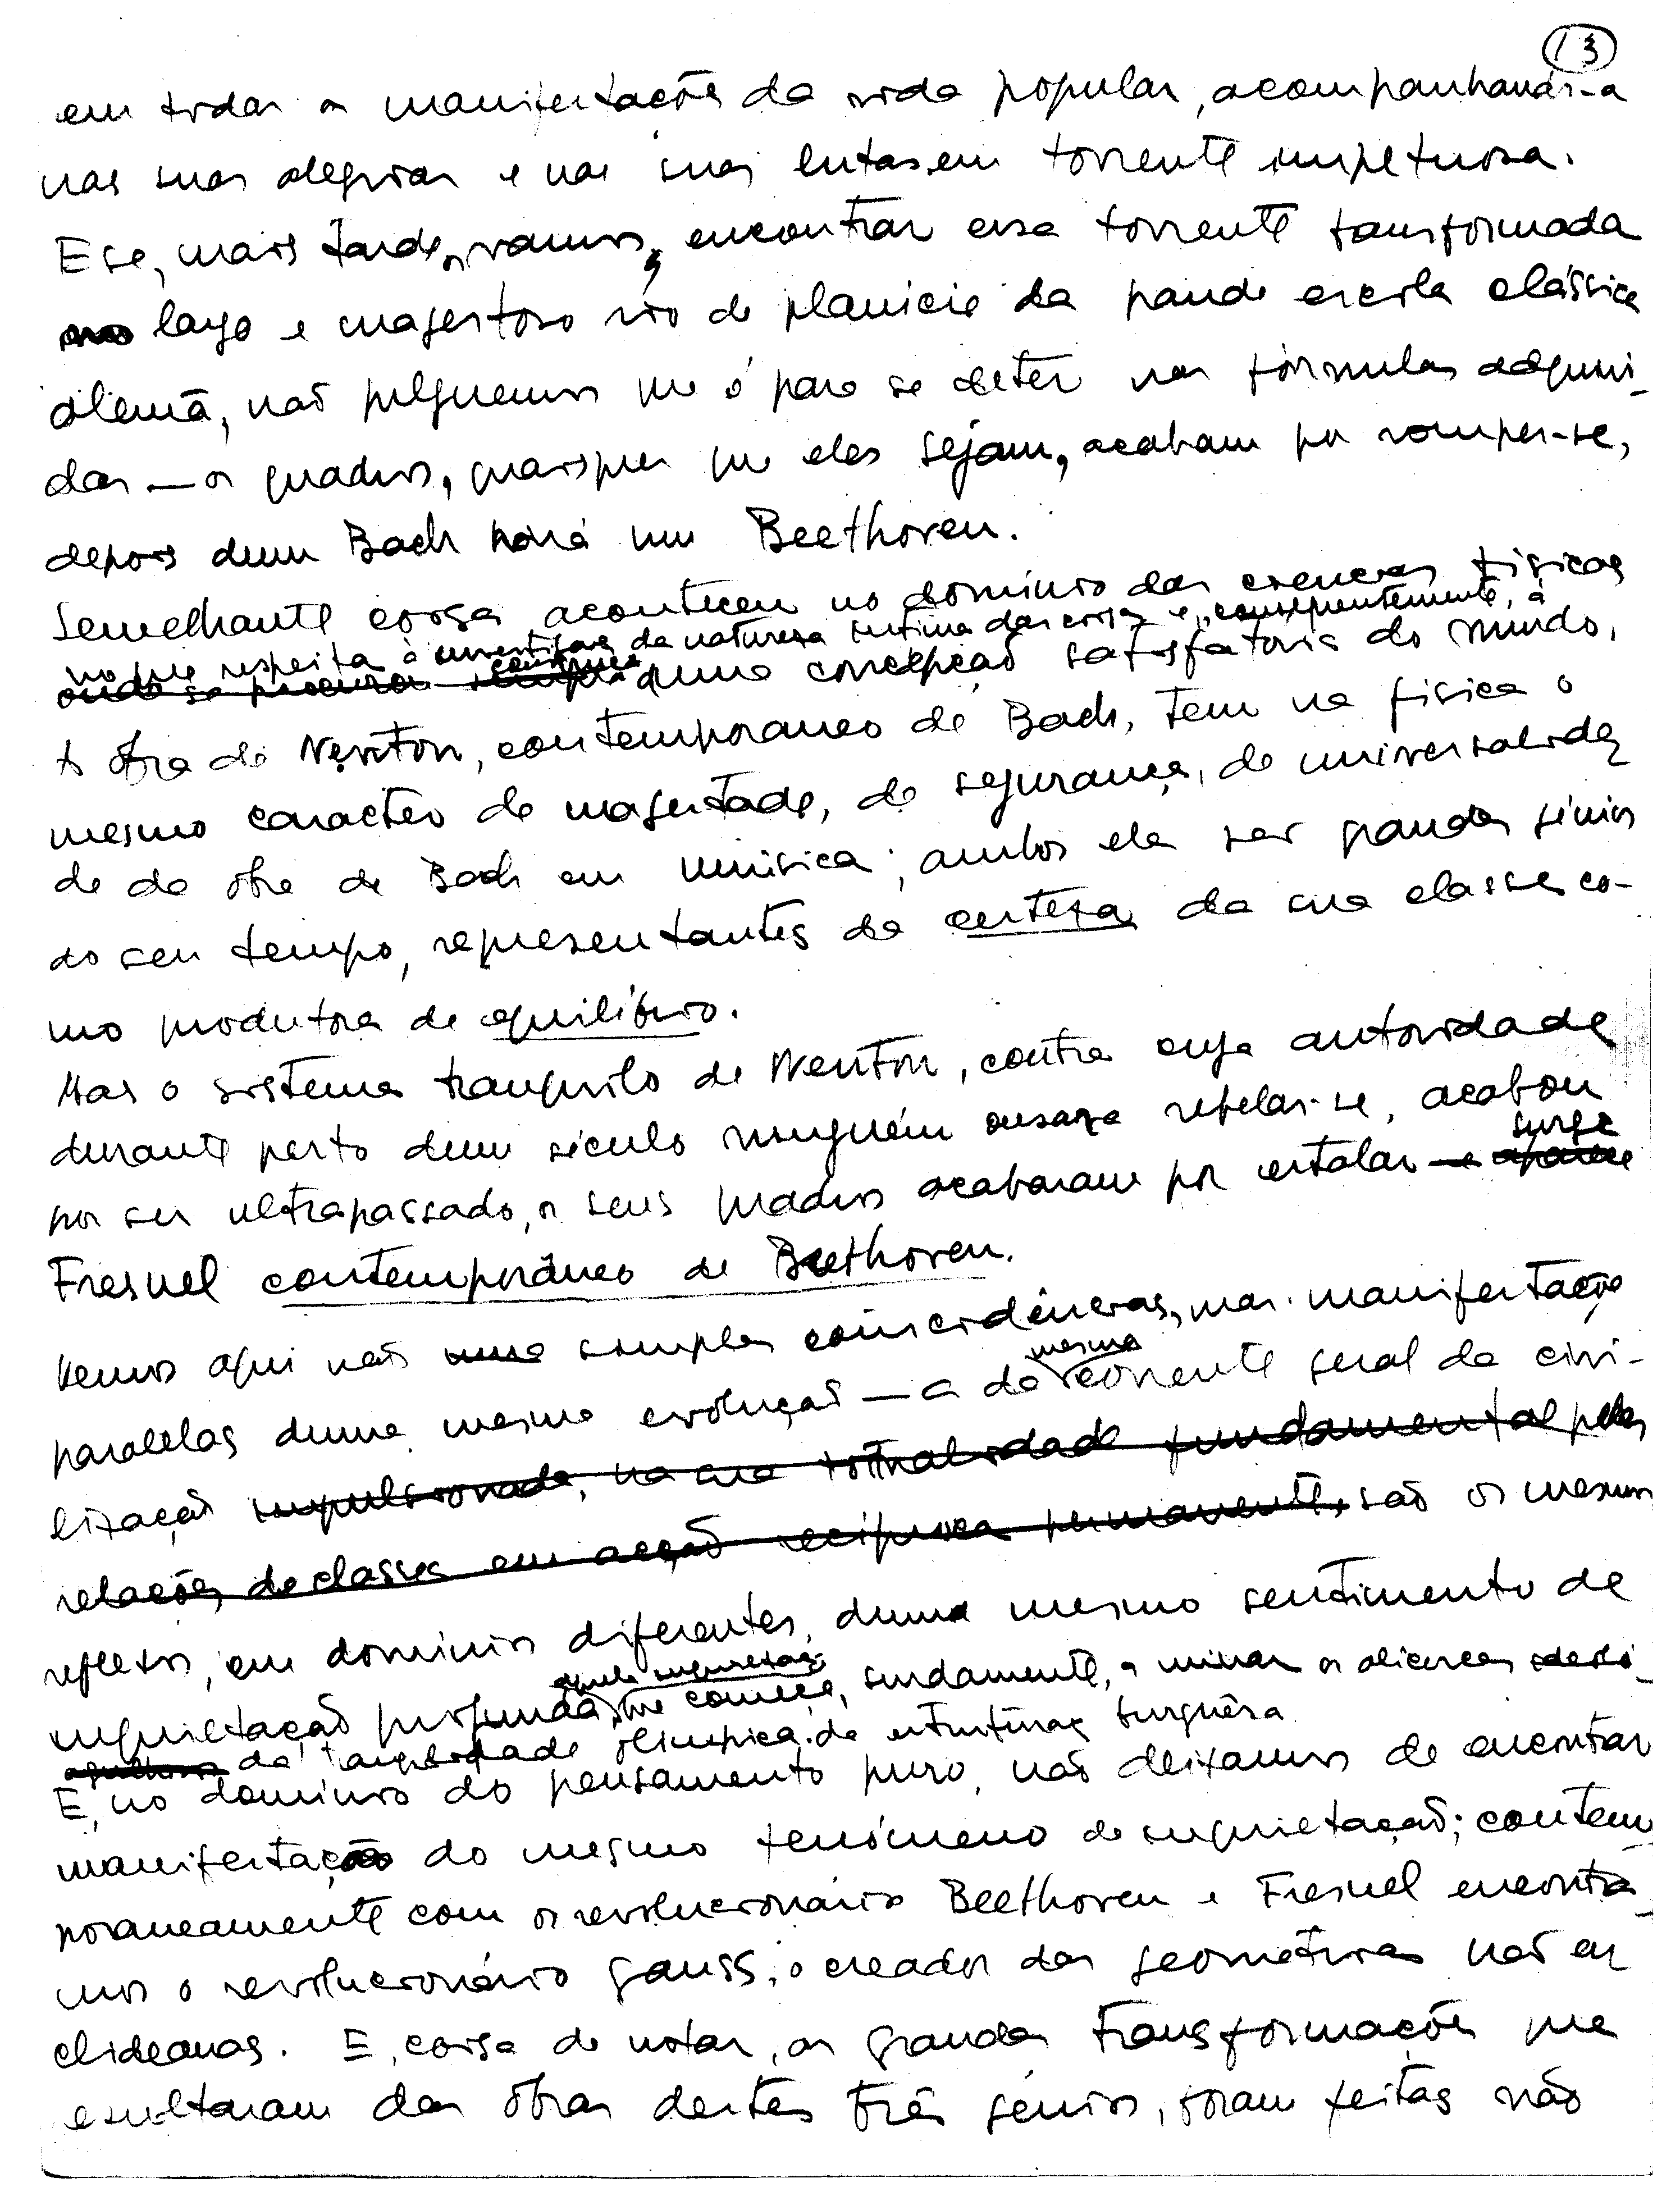 13
em todas as manifestações da vida popular, acompanhando-a
nas suas alegrias e nas suas lutas em torrente impetuosa.
E se, mais tarde, vamos encontrar essa torrente transformada
no largo e magestoso rio de planície da grande escola clássica
alemã, não julguemos que é para se deter nas fórmulas adquiri-
das — os quadros, quaisquer que eles sejam, acabam por romper-se,
depois dum Bach virá um Beethoven.
Semelhante coisa aconteceu no domínio das ciencias físicas
no que respeita à investigação da natureza íntima das coisas e, consequentemente, à
onde se procura sempre duma concepção satisfatoria do mundo.
A obra de Newton, contemporaneo de Bach, tem na física o
mesmo caracter de magestade, de segurança, de universalida-
de da obra de Bach em música; ambos eles são grandes génios
do seu tempo, representantes da certeza da sua classe co-
mo produtora de equilíbrio.
Mas o sistema tranquilo de Newton, contra cuja autoridade
durante perto dum século ninguém ousara rebelar-se, acabou
por ser ultrapassado, os seus quadros acabaram por estalar — e aparece
surge
Fresnel contemporâneo de Beethoven.
Vemos aqui não uma simples coincidências, mas manifestações
paralelas duma mesma evolução — a da corrente geral da civi-
mesma
lização impulsionada, na sua totalidade fundamental pelas
relações de classes em acção reciproca permanente, são os mesmos
reflexos, em dominios diferentes, duma mesmo sentimento de
inquietação profunda, que começa, surdamente, a minar os alicerces
daquela tranquilidade olímpica da estrutura burguêsa.
E, no dominio do pensamento puro, não deixamos de encontrar
manifestação do mesmo fenómeno de inquietação; contem-
poraneamente com os revolucionários Beethoven e Fresnel encontra-
mos o revolucionário Gauss, o creador das geometrias não eu-
clideanas. E, coisa de notar, as grandes transformações que
resultaram das obras destes três génios, foram feitas não